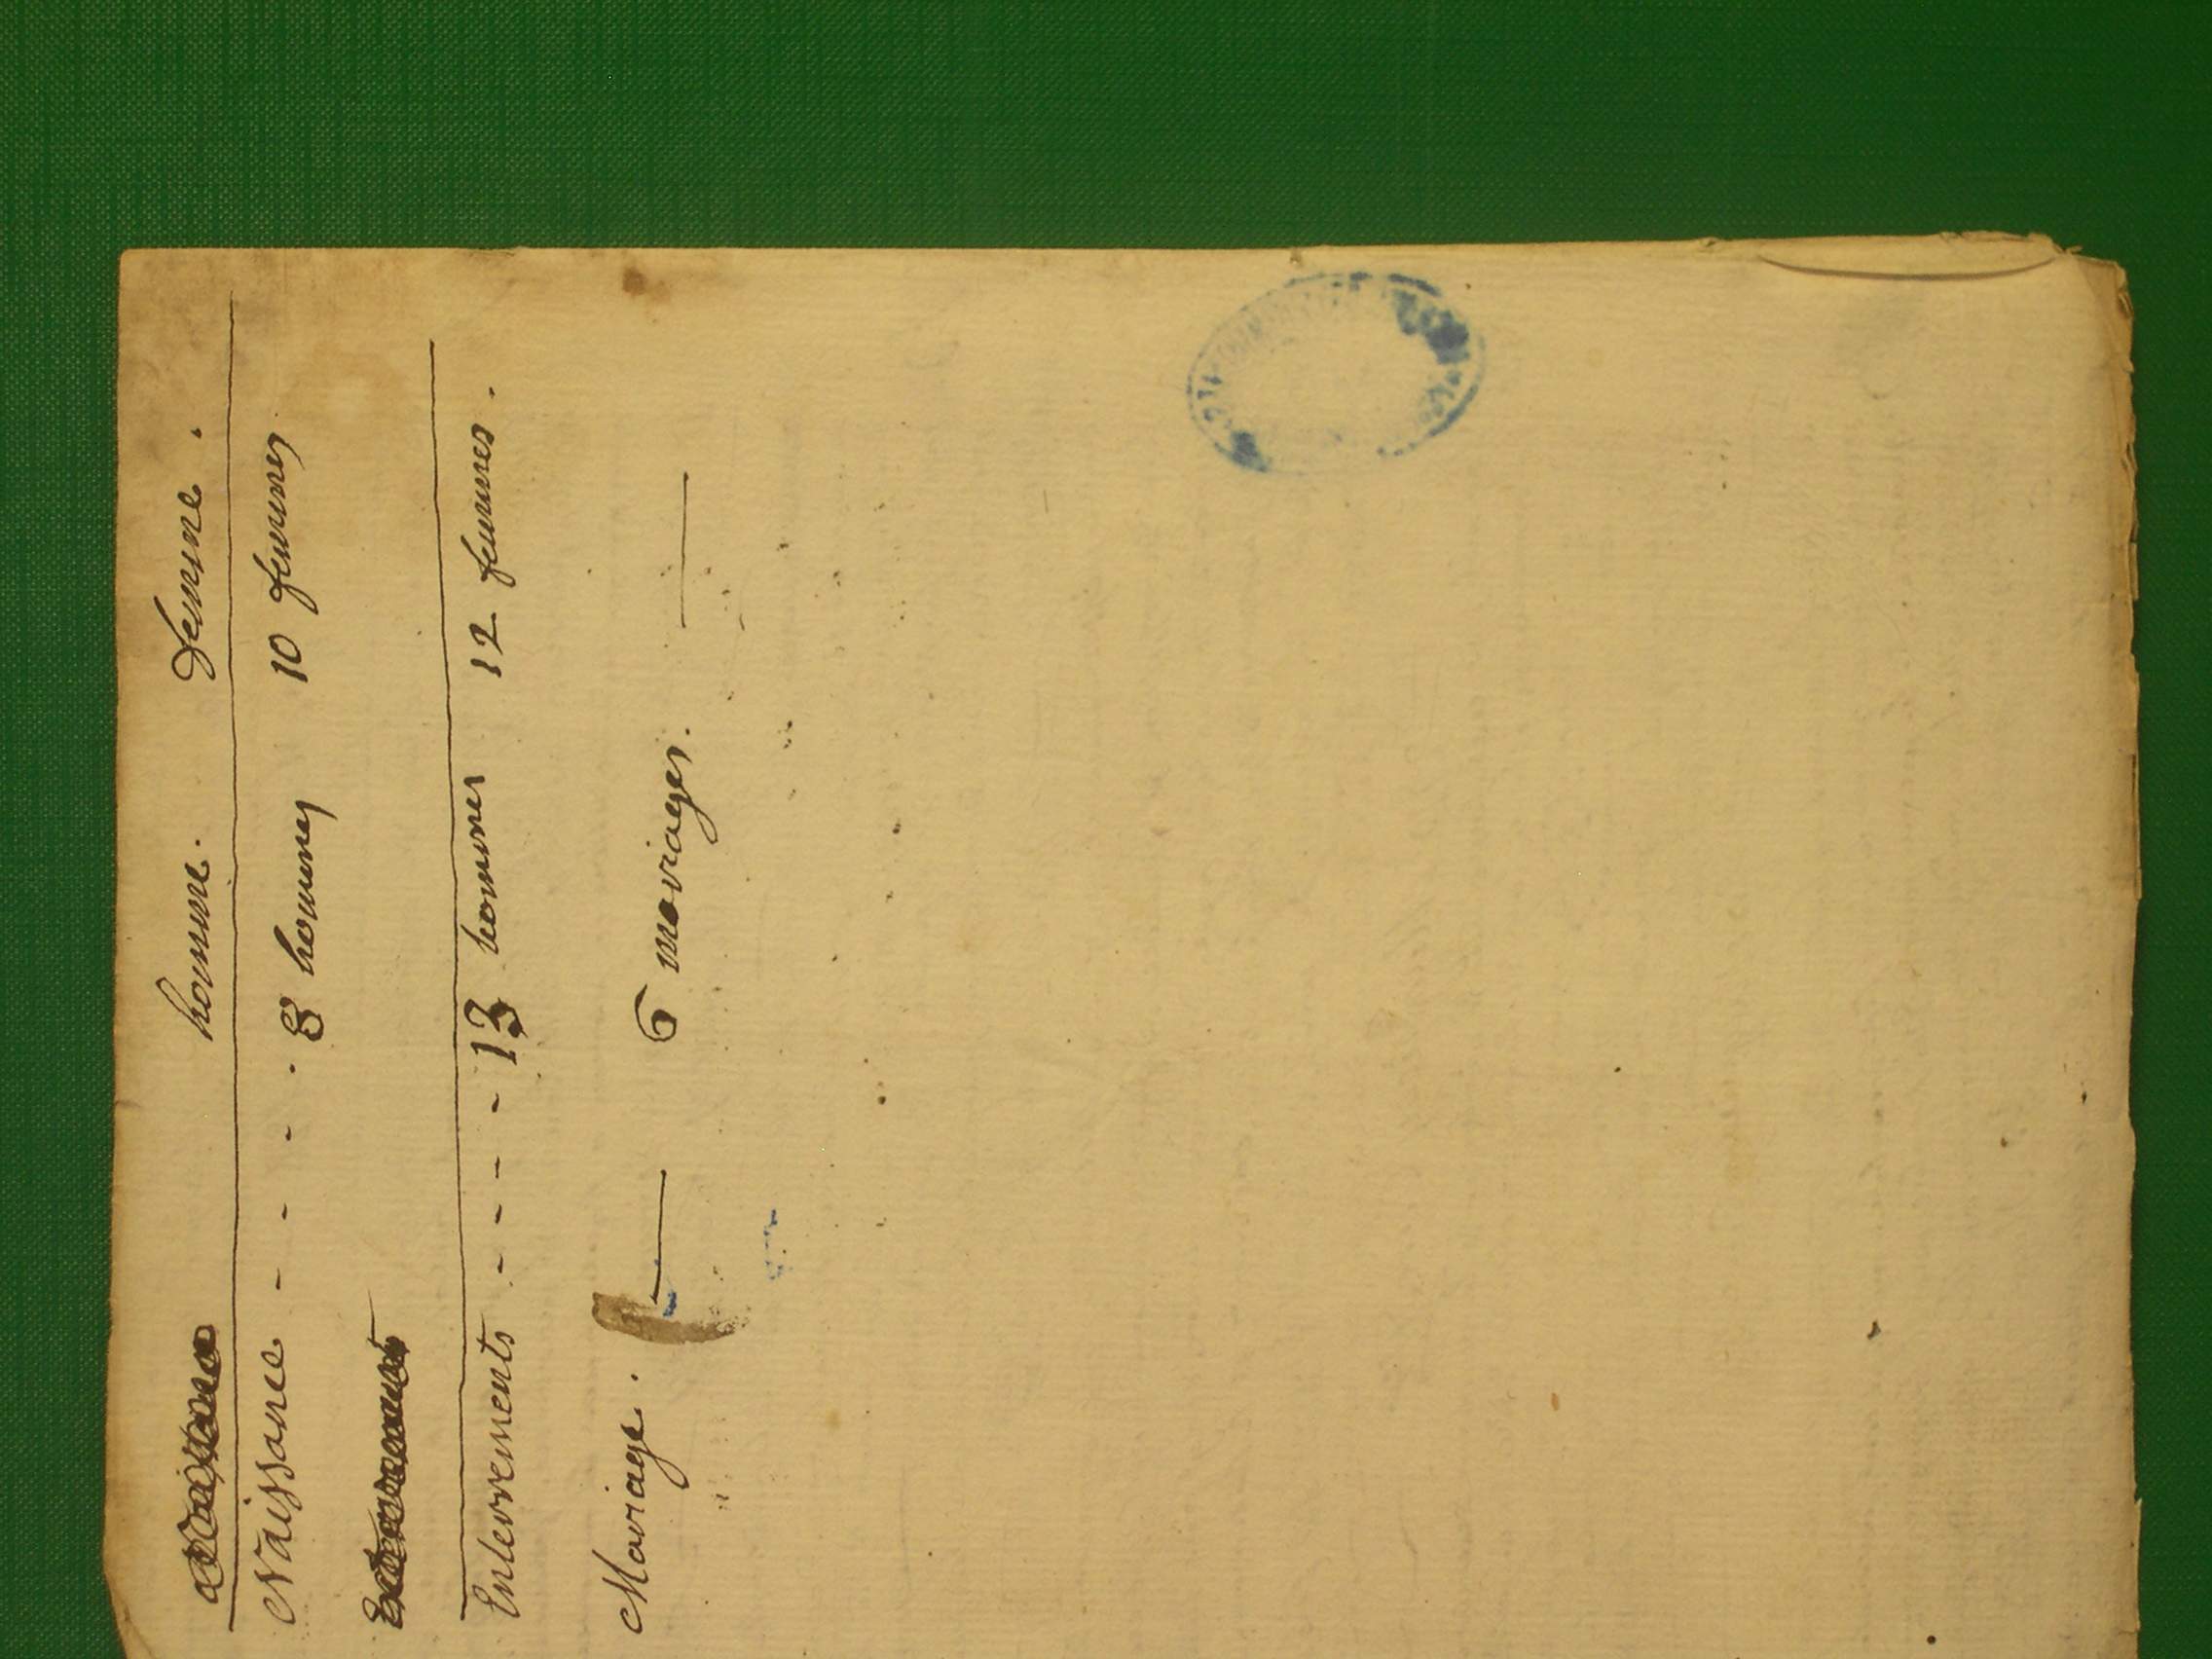 homme. femme.
Naissance - - - . 8 hommes 10 femmes
Enterrements - - - - 13 hommes 12 femmes.
Mariage. — 6 mariages. —